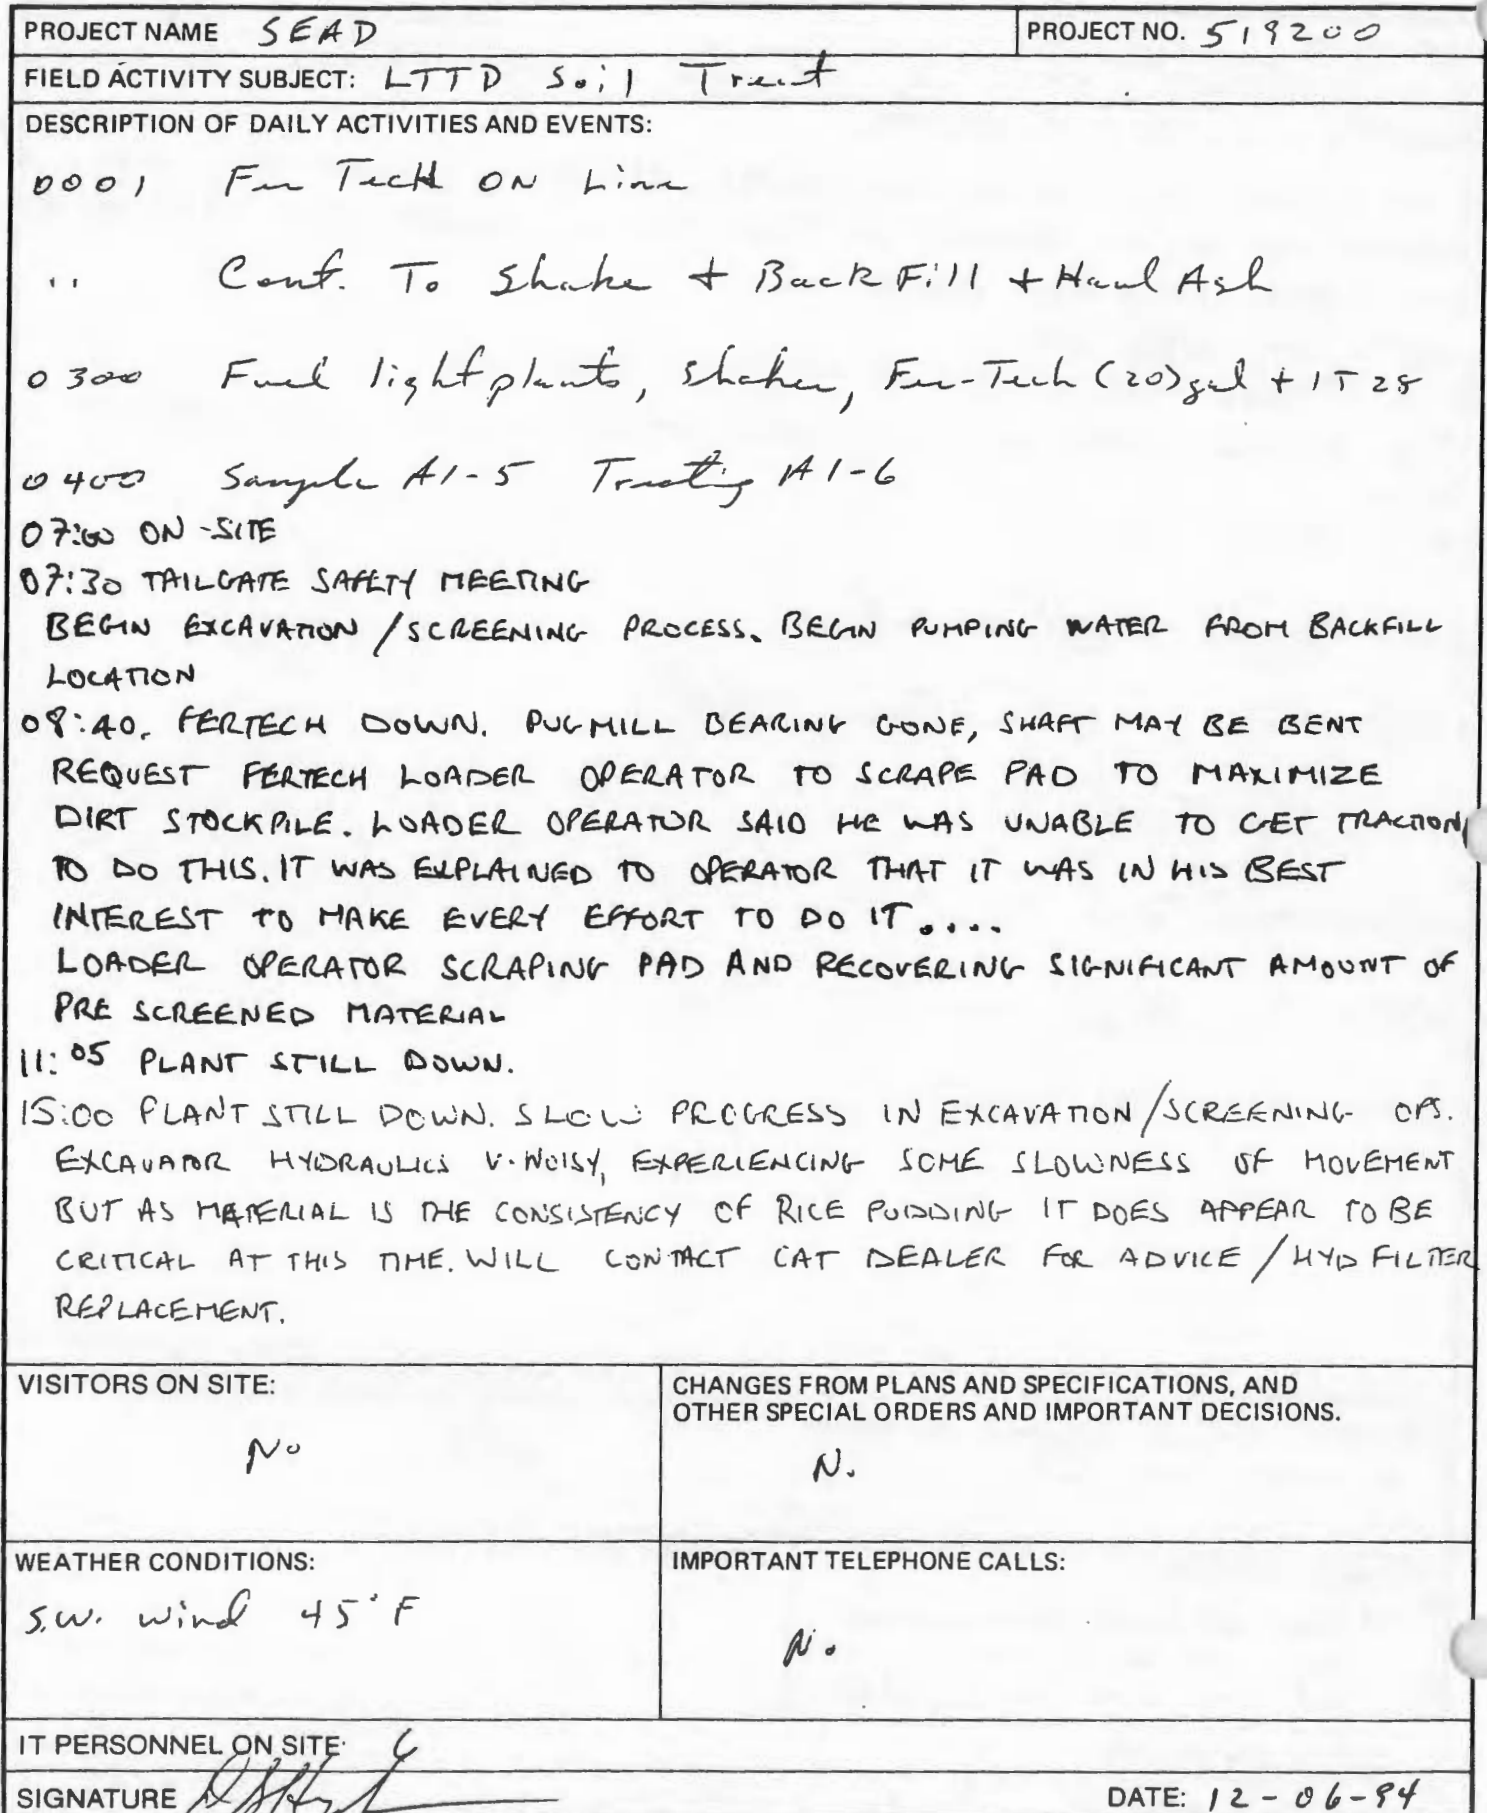 PROJECT NAME SEAD PROJECT NO. 519200
FIELD ACTIVITY SUBJECT: LTTD Soil Treat
DESCRIPTION OF DAILY ACTIVITIES AND EVENTS:
0001 Fer Tech ON Line
" Cont. To Shake + Back Fill + Haul Ash
0300 Fuel light plants, shaker, Fer-Tech (20) gal + IT 28
0400 Sample A1-5 Treating A1-6
07:00 ON-SITE
07:30 TAILGATE SAFETY MEETING
BEGIN EXCAVATION / SCREENING PROCESS. BEGIN PUMPING WATER FROM BACKFILL
LOCATION
08:40. FERTECH DOWN. PUGMILL BEARING GONE, SHAFT MAY BE BENT
REQUEST FERTECH LOADER OPERATOR TO SCRAPE PAD TO MAXIMIZE
DIRT STOCKPILE. LOADER OPERATOR SAID HE WAS UNABLE TO GET TRACTION
TO DO THIS. IT WAS EXPLAINED TO OPERATOR THAT IT WAS IN HIS BEST
INTEREST TO MAKE EVERY EFFORT TO DO IT....
LOADER OPERATOR SCRAPING PAD AND RECOVERING SIGNIFICANT AMOUNT OF
PRE SCREENED MATERIAL
11:05 PLANT STILL DOWN.
15:00 PLANT STILL DOWN. SLOW PROGRESS IN EXCAVATION/SCREENING OPS.
EXCAVATOR HYDRAULICS V. NOISY, EXPERIENCING SOME SLOWNESS OF MOVEMENT
BUT AS MATERIAL IS THE CONSISTENCY OF RICE PUDDING IT DOES APPEAR TO BE
CRITICAL AT THIS TIME. WILL CONTACT CAT DEALER FOR ADVICE / HYD FILTER
REPLACEMENT.
VISITORS ON SITE:
No
CHANGES FROM PLANS AND SPECIFICATIONS, AND
OTHER SPECIAL ORDERS AND IMPORTANT DECISIONS.
No
WEATHER CONDITIONS:
S.W. wind 45°F
IMPORTANT TELEPHONE CALLS:
No
IT PERSONNEL ON SITE: 6
SIGNATURE DATE: 12-06-94